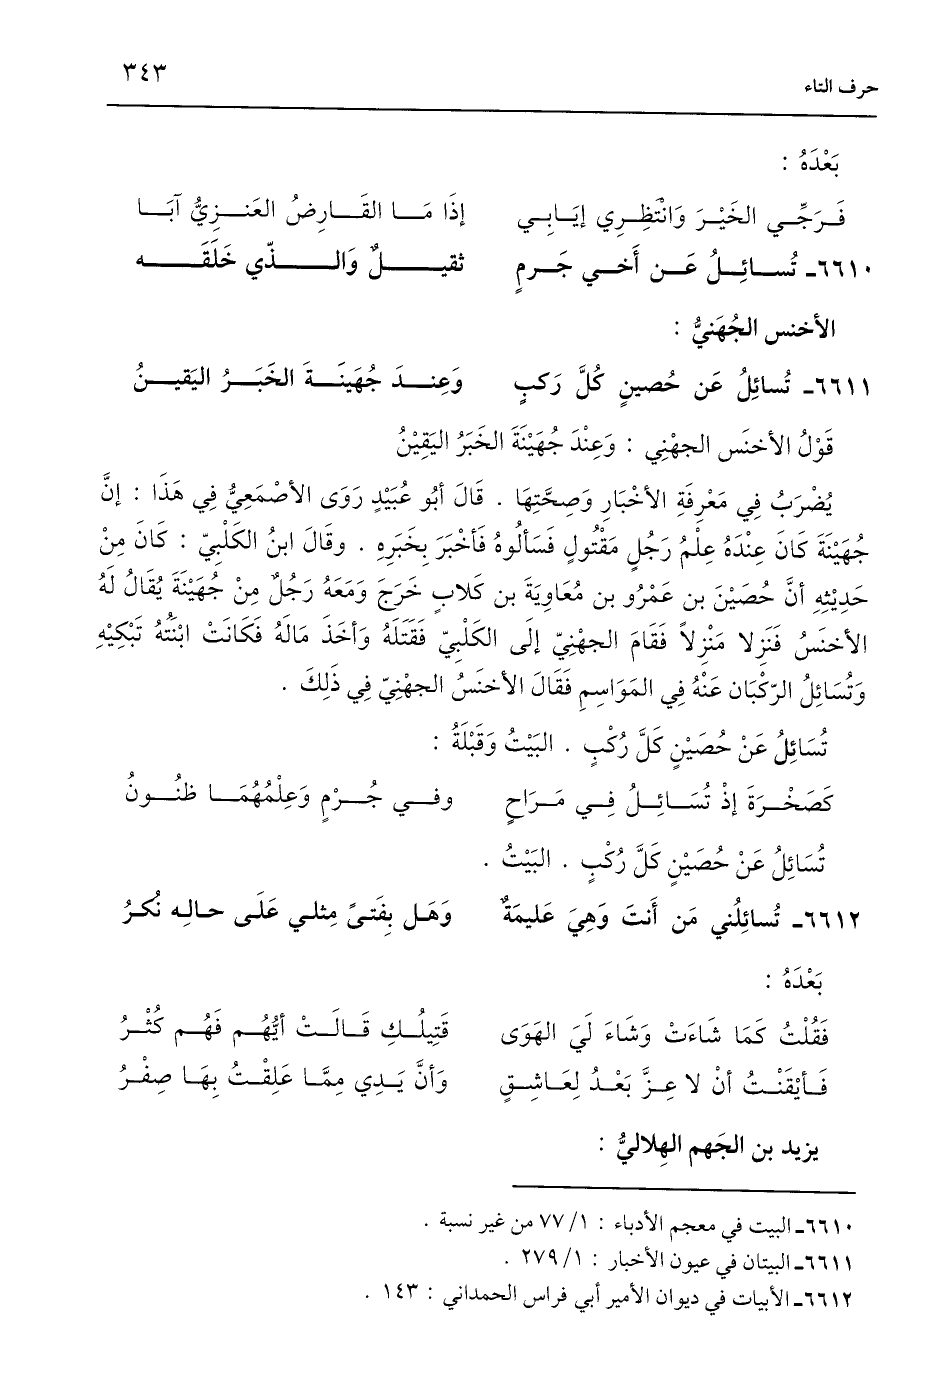 حرف التاء ٣٤٣
بَعْدَهُ :
فَرَجِّي الخَيْرَ وَانْتَظِرِي إيَابِي إذَا مَا القَارِضُ العَنزِيُّ آبَا
٦٦١٠ـ تُسائِلُ عَن أَخي جَرمٍ ثقيلٌ وَالذّي خَلَقَه
الأخنس الجُهَنيُّ :
٦٦١١ـ تُسائِلُ عَن حُصينٍ كُلَّ رَكبٍ وَعِندَ جُهَينَةَ الخَبَرُ اليَقينُ
قَوْلُ الأخنَس الجهْنِي : وَعِنْدَ جُهَيْنَةَ الخَبَرُ اليَقِيْنُ
يُضْرَبُ فِي مَعْرِفَةِ الأخْبَارِ وَصِحَّتِهَا . قَالَ أبُو عُبَيْدٍ رَوَى الأصْمَعِيُّ فِي هَذَا : إنَّ
جُهَيْنَةَ كَانَ عِنْدَهُ عِلْمُ رَجُلٍ مَقْتُولٍ فَسَألُوهُ فَأخْبَرَ بِخَبَرِهِ . وقَالَ ابنُ الكَلْبِيّ : كَانَ مِنْ
حَدِيْثِهِ أنَّ حُصَيْنَ بن عَمْرُو بن مُعَاوِيَةَ بن كَلابٍ خَرَجَ وَمَعَهُ رَجُلٌ مِنْ جُهَيْنَةَ يُقَالُ لَهُ
الأخنَسُ فَنَزِلا مَنْزِلاً فَقَامَ الجهْنِيّ إلَى الكَلْبِيّ فَقَتَلَهُ وَأخَذَ مَالَهُ فَكَانَتْ ابْنَتُهُ تَبْكِيْهِ
وَتُسَائِلُ الرّكْبَان عَنْهُ فِي المَوَاسِمِ فَقَالَ الأخنَسُ الجهْنِيّ فِي ذَلِكَ .
تُسَائِلُ عَنْ حُصَيْنٍ كَلَّ رُكْبٍ . البَيْتُ وَقَبْلَهُ :
كَصَخْرَةَ إذْ تُسَائِلُ فِي مَرَاحٍ وفي جُرْمٍ وَعِلْمُهُمَا ظنُونُ
تُسَائِلُ عَنْ حُصَيْنٍ كَلَّ رُكْبٍ . البَيْتُ .
٦٦١٢ـ تُسائِلُني مَن أَنتَ وَهِيَ عَليمَةٌ وَهَل بِفَتىً مِثلي عَلَى حالِه نُكرُ
بَعْدَهُ :
فَقُلْتُ كَمَا شَاءَتْ وَشَاءَ لَيَ الهَوَى قَتِيلُكِ قَالَتْ أيُّهُم فَهُم كُثْرُ
فَأيْقَنْتُ أنْ لا عِزَّ بَعْدُ لِعَاشِقٍ وَأنَّ يَدِي مِمَّا عَلِقْتُ بِهَا صِفْرُ
يزيد بن الجَهم الهِلاليُّ :
٦٦١٠ـ البيت في معجم الأدباء : ١/ ٧٧ من غير نسبة .
٦٦١١ـ البيتان في عيون الأخبار : ١/ ٢٧٩ .
٦٦١٢ـ الأبيات في ديوان الأمير أبي فراس الحمداني : ١٤٣ .